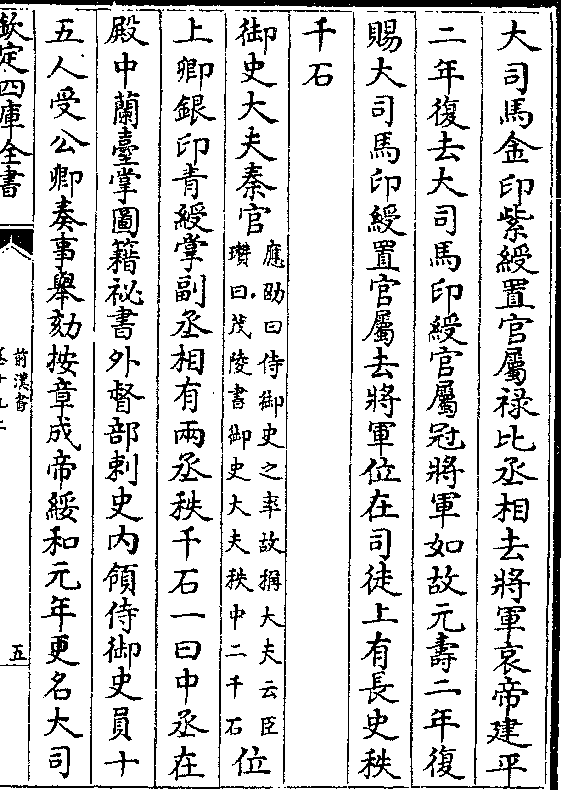 大司馬金印紫綬置官屬祿比丞相去將軍哀帝建平
二年復去大司馬印綬官屬冠將軍如故元壽二年復
賜大司馬印綬置官屬去將軍位在司徒上有長史秩
千石
御史大夫秦官應劭曰侍御史之率故稱大夫云臣瓚曰茂陵書御史大夫秩中二千石位
上卿銀印青綬掌副丞相有兩丞秩千石一曰中丞在
殿中蘭臺掌圖籍祕書外督部刺史內領侍御史員十
五人受公卿奏事舉劾按章成帝綏和元年更名大司
欽定四庫全書
前漢書
五